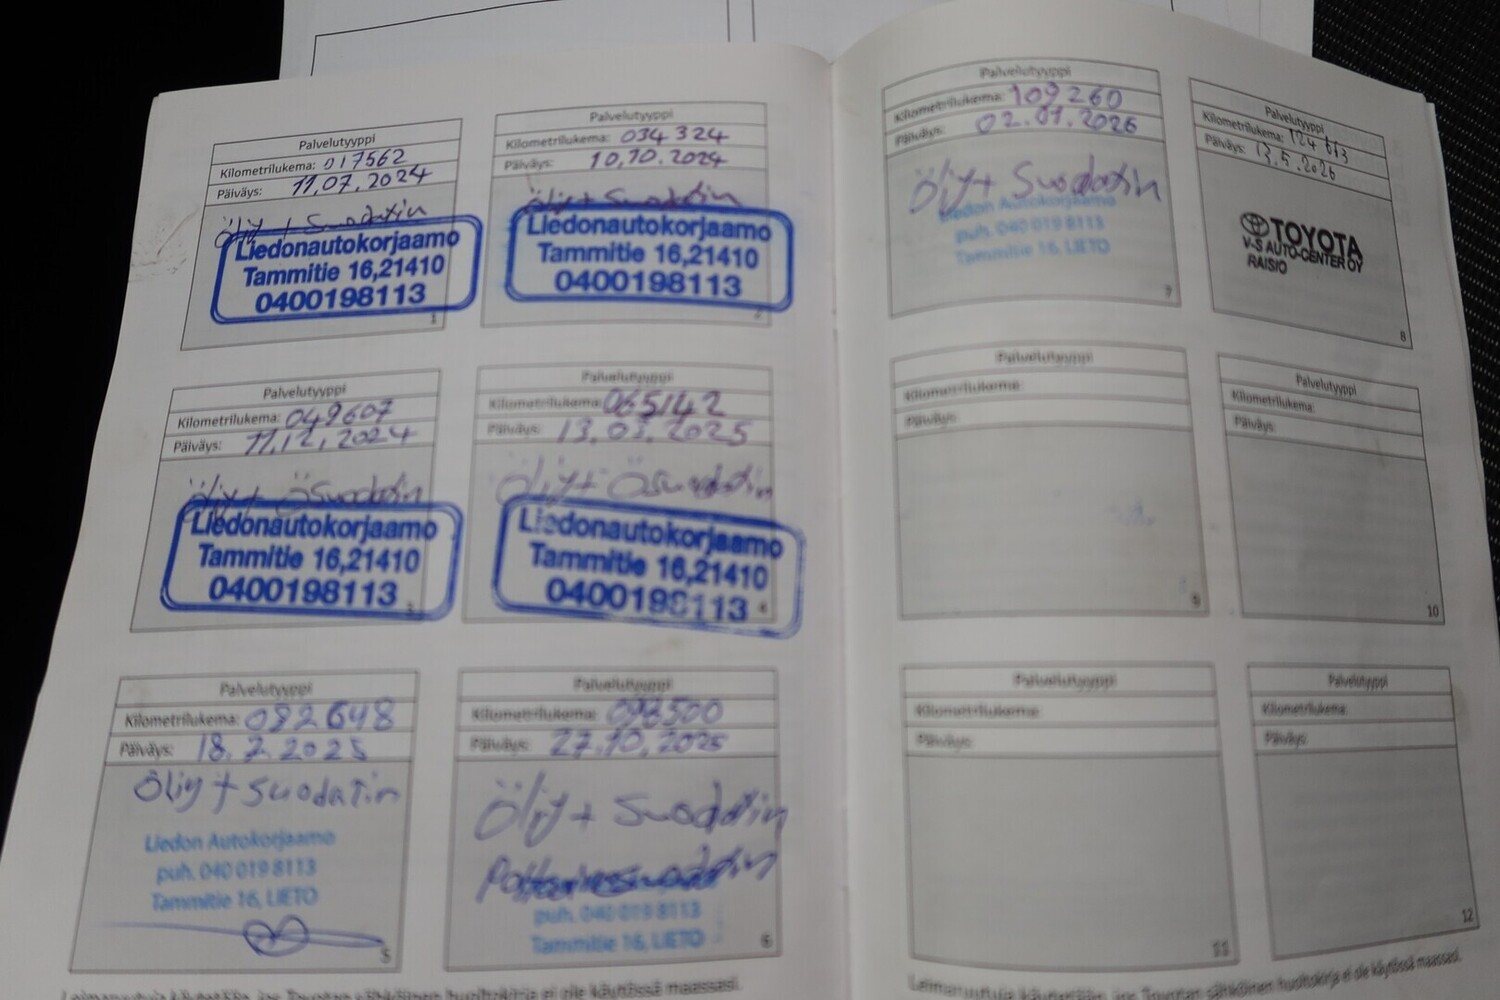 Palvelutyyppi
Kilometrilukema: 017562
Päiväys: 11.07.2024
Öljy + Suodatin
Liedonautokorjaamo
Tammitie 16,21410
0400198113
1
Palvelutyyppi
Kilometrilukema: 034 324
Päiväys: 10.10.2024
Öljy + Suodatin
Liedonautokorjaamo
Tammitie 16,21410
0400198113
2
Palvelutyyppi
Kilometrilukema: 049607
Päiväys: 11.12.2024
Öljy + Ösuodatin
Liedonautokorjaamo
Tammitie 16,21410
0400198113
3
Palvelutyyppi
Kilometrilukema: 065142
Päiväys: 13.03.2025
Öljy + Ösuodatin
Liedonautokorjaamo
Tammitie 16,21410
0400198113
4
Palvelutyyppi
Kilometrilukema: 082648
Päiväys: 18.7.2025
Öljy + suodatin
Liedon Autokorjaamo
puh. 040 019 8113
Tammitie 16, LIETO
5
Palvelutyyppi
Kilometrilukema: 096500
Päiväys: 27.10.2025
Öljy + Suodatin
puh. 040 019 8113
Tammitie 16, LIETO
6
Leimaruutuja käytetään, jos Toyotan sähköinen huoltokirja ei ole käytössä maassasi.
Palvelutyyppi
Kilometrilukema: 109260
Päiväys: 02.01.2026
Öljy + Suodatin
Liedon Autokorjaamo
puh. 040 019 8113
Tammitie 16, LIETO
7
Palvelutyyppi
Kilometrilukema: 124 613
Päiväys: 13.5.2026
TOYOTA
V-S AUTO-CENTER OY
RAISIO
8
Palvelutyyppi
Kilometrilukema:
Päiväys:
9
Palvelutyyppi
Kilometrilukema:
Päiväys:
10
Palvelutyyppi
Kilometrilukema:
Päiväys:
11
Palvelutyyppi
Kilometrilukema:
Päiväys:
12
Leimaruutuja käytetään, jos Toyotan sähköinen huoltokirja ei ole käytössä maassasi.